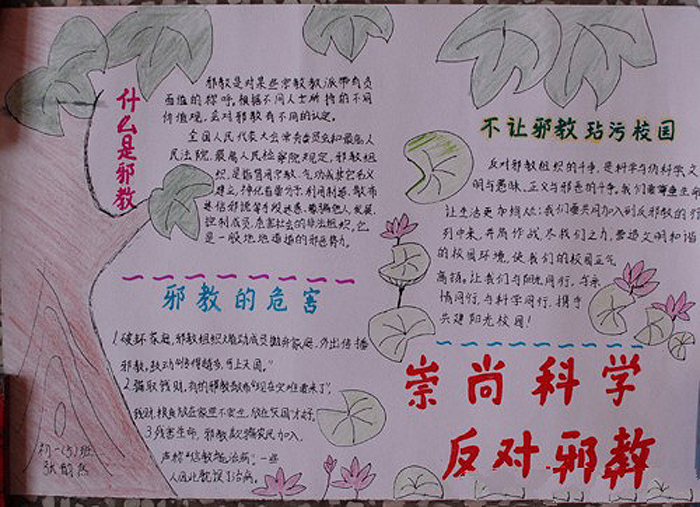 什么是邪教
邪教是对某些宗教教派带有负
面值的称呼。根据不同人士所持的不同
价值观,会对邪教有不同的认定。
全国人民代表大会常务委员会和最高人
民法院、最高人民检察院规定,邪教组
织,是指冒用宗教、气功或其它名义
建立,神化首要分子,利用制造、散布
迷信邪说等手段迷惑、蒙骗他人,发展、
控制成员,危害社会的非法组织。它
是一般地地道道的邪恶势力。
邪教的危害
1.破坏家庭,邪教组织煽动成员抛弃家庭,外出传播
邪教,鼓动
2.骗取钱财,有的邪教散布
3.残害生命,邪教欺骗农民加入,
声称"信教能治病",一些
人因此耽误了治病。
初一(5)班
不让邪教玷污校园
反对邪教组织的斗争,是科学与伪科学,文
明与愚昧,正义与邪恶的斗争,我们要尊重生命
让生活更加精彩;我们要共同加入到反邪教的行
列中来,并肩作战,尽我们之力,营造文明和谐
的校园环境,使我们的校园正气
高扬,让我们与阳光同行,与亲
情同行,与科学同行,携手
共建阳光校园!
崇尚科学
反对邪教